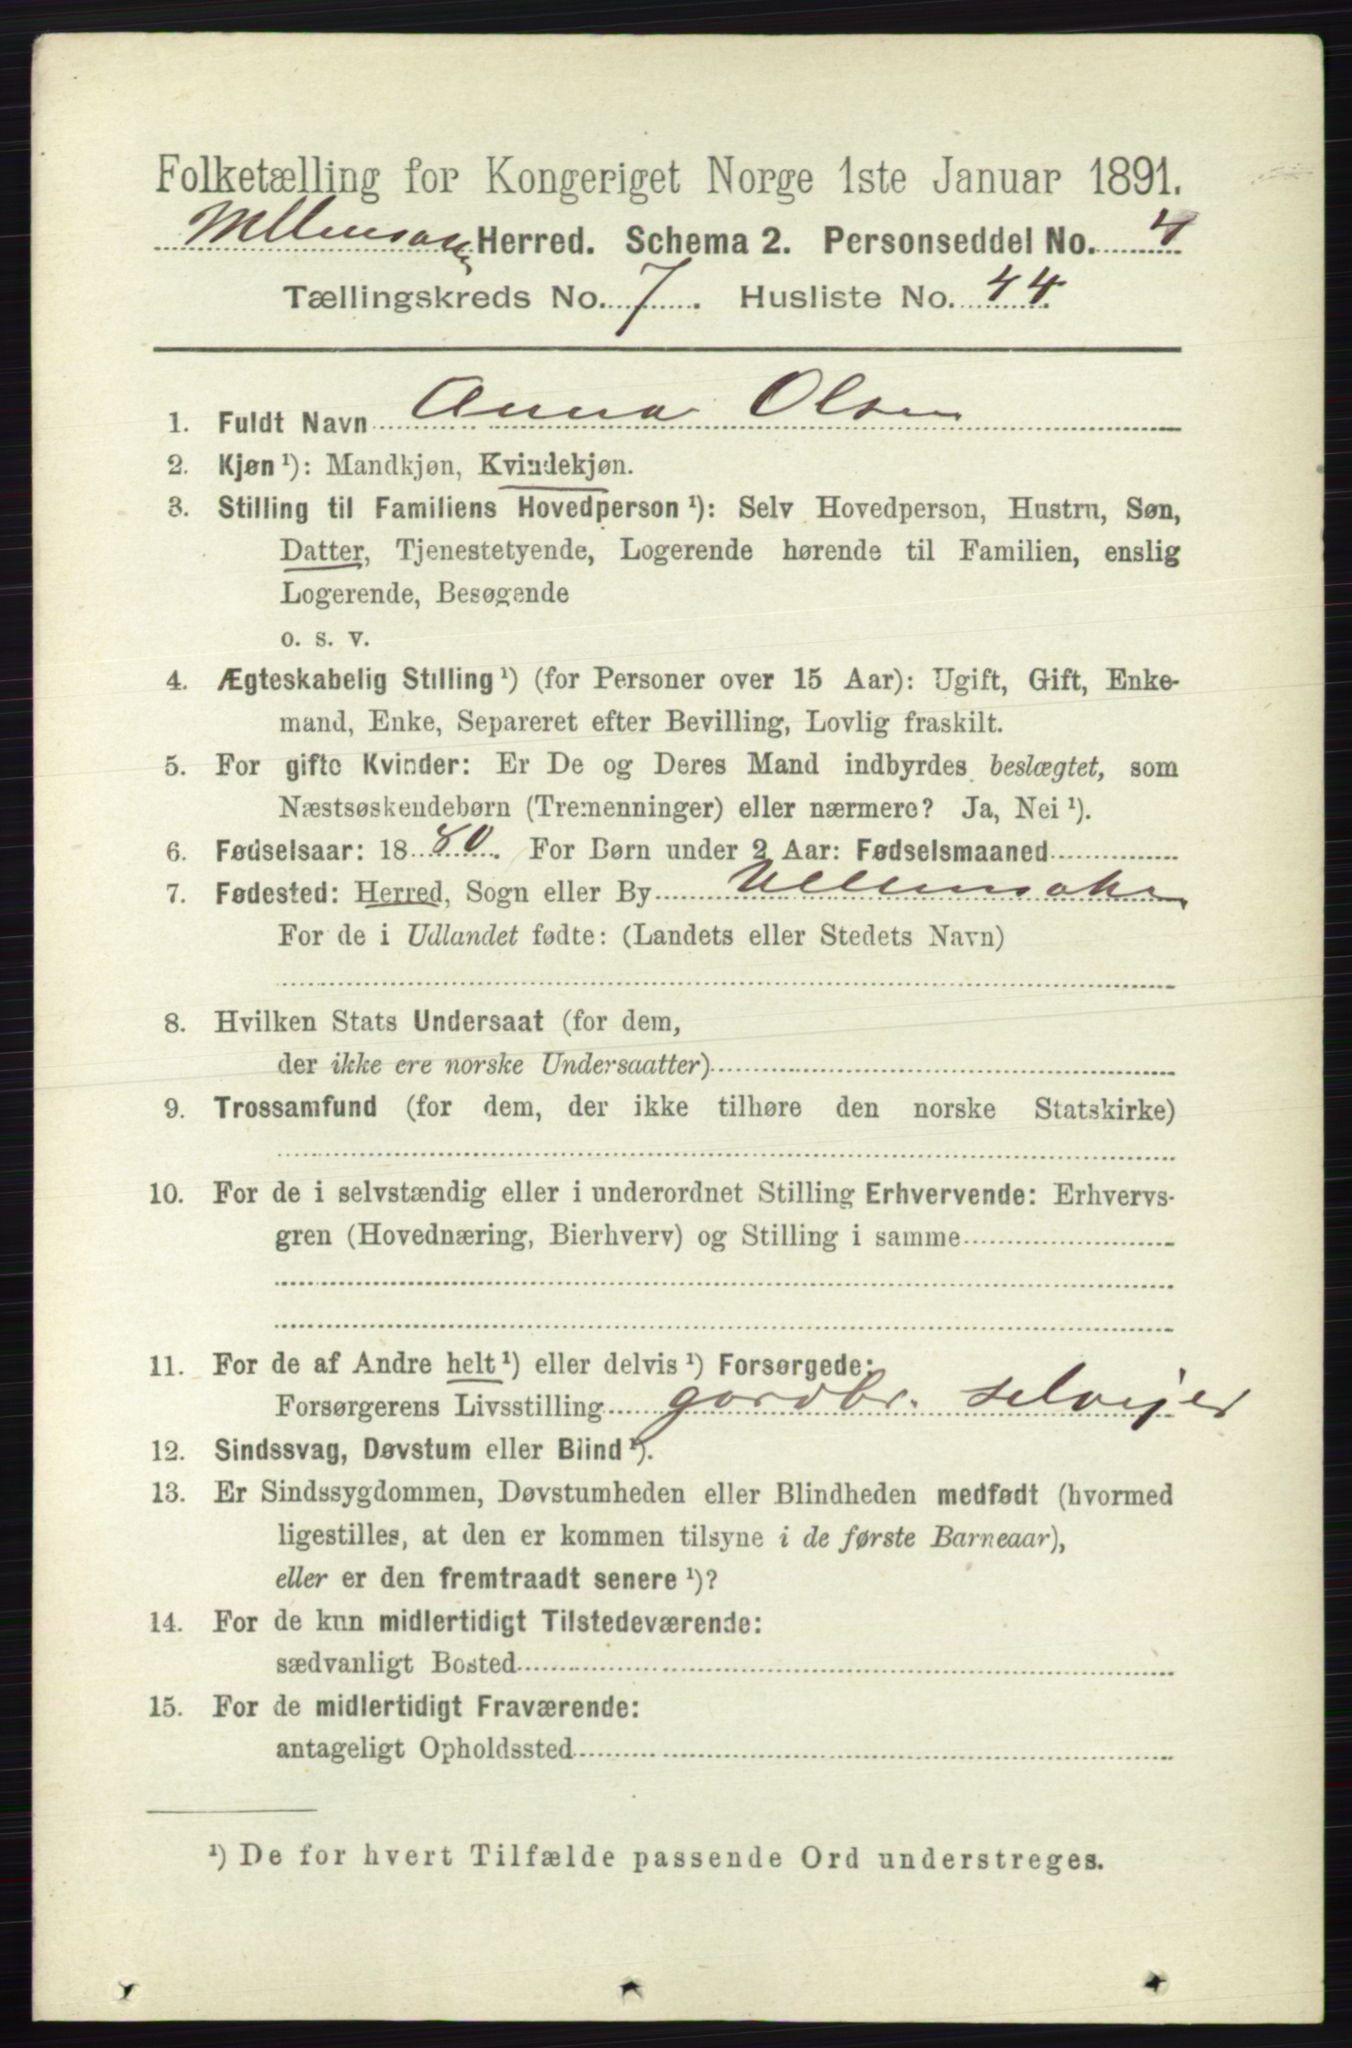 Folketælling for Kongeriget Norge 1ste Januar 1891.
Ullensaker Herred. Schema 2. Personseddel No. 4
Tællingskreds No. 7. Husliste No. 44
1. Fuldt Navn Anna Olsen
2. Kjøn ¹): Mandkjøn, Kvindekjøn.
3. Stilling til Familiens Hovedperson ¹): Selv Hovedperson, Hustru, Søn,
Datter, Tjenestetyende, Logerende hørende til Familien, enslig
Logerende, Besøgende
o. s. v.
4. Ægteskabelig Stilling ¹) (for Personer over 15 Aar): Ugift, Gift, Enke-
mand, Enke, Separeret efter Bevilling, Lovlig fraskilt.
5. For gifte Kvinder: Er De og Deres Mand indbyrdes beslægtet, som
Næstsøskendebørn (Tremenninger) eller nærmere? Ja, Nei ¹).
6. Fødselsaar: 1880. For Børn under 2 Aar: Fødselsmaaned
7. Fødested: Herred, Sogn eller By Ullensaker
For de i Udlandet fødte: (Landets eller Stedets Navn)
8. Hvilken Stats Undersaat (for dem,
der ikke ere norske Undersaatter)
9. Trossamfund (for dem, der ikke tilhøre den norske Statskirke)
10. For de i selvstændig eller i underordnet Stilling Erhvervende: Erhvervs-
gren (Hovednæring, Bierhverv) og Stilling i samme
11. For de af Andre helt ¹) eller delvis ¹) Forsørgede:
Forsørgerens Livsstilling gardbr. selveier
12. Sindssvag, Døvstum eller Blind ¹).
13. Er Sindssygdommen, Døvstumheden eller Blindheden medfødt (hvormed
ligestilles, at den er kommen tilsyne i de første Barneaar),
eller er den fremtraadt senere ¹)?
14. For de kun midlertidigt Tilstedeværende:
sædvanligt Bosted
15. For de midlertidigt Fraværende:
antageligt Opholdssted
¹) De for hvert Tilfælde passende Ord understreges.